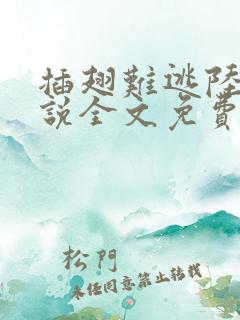 插翅難逃陸
說全文免費
松門
未经同意禁止转载